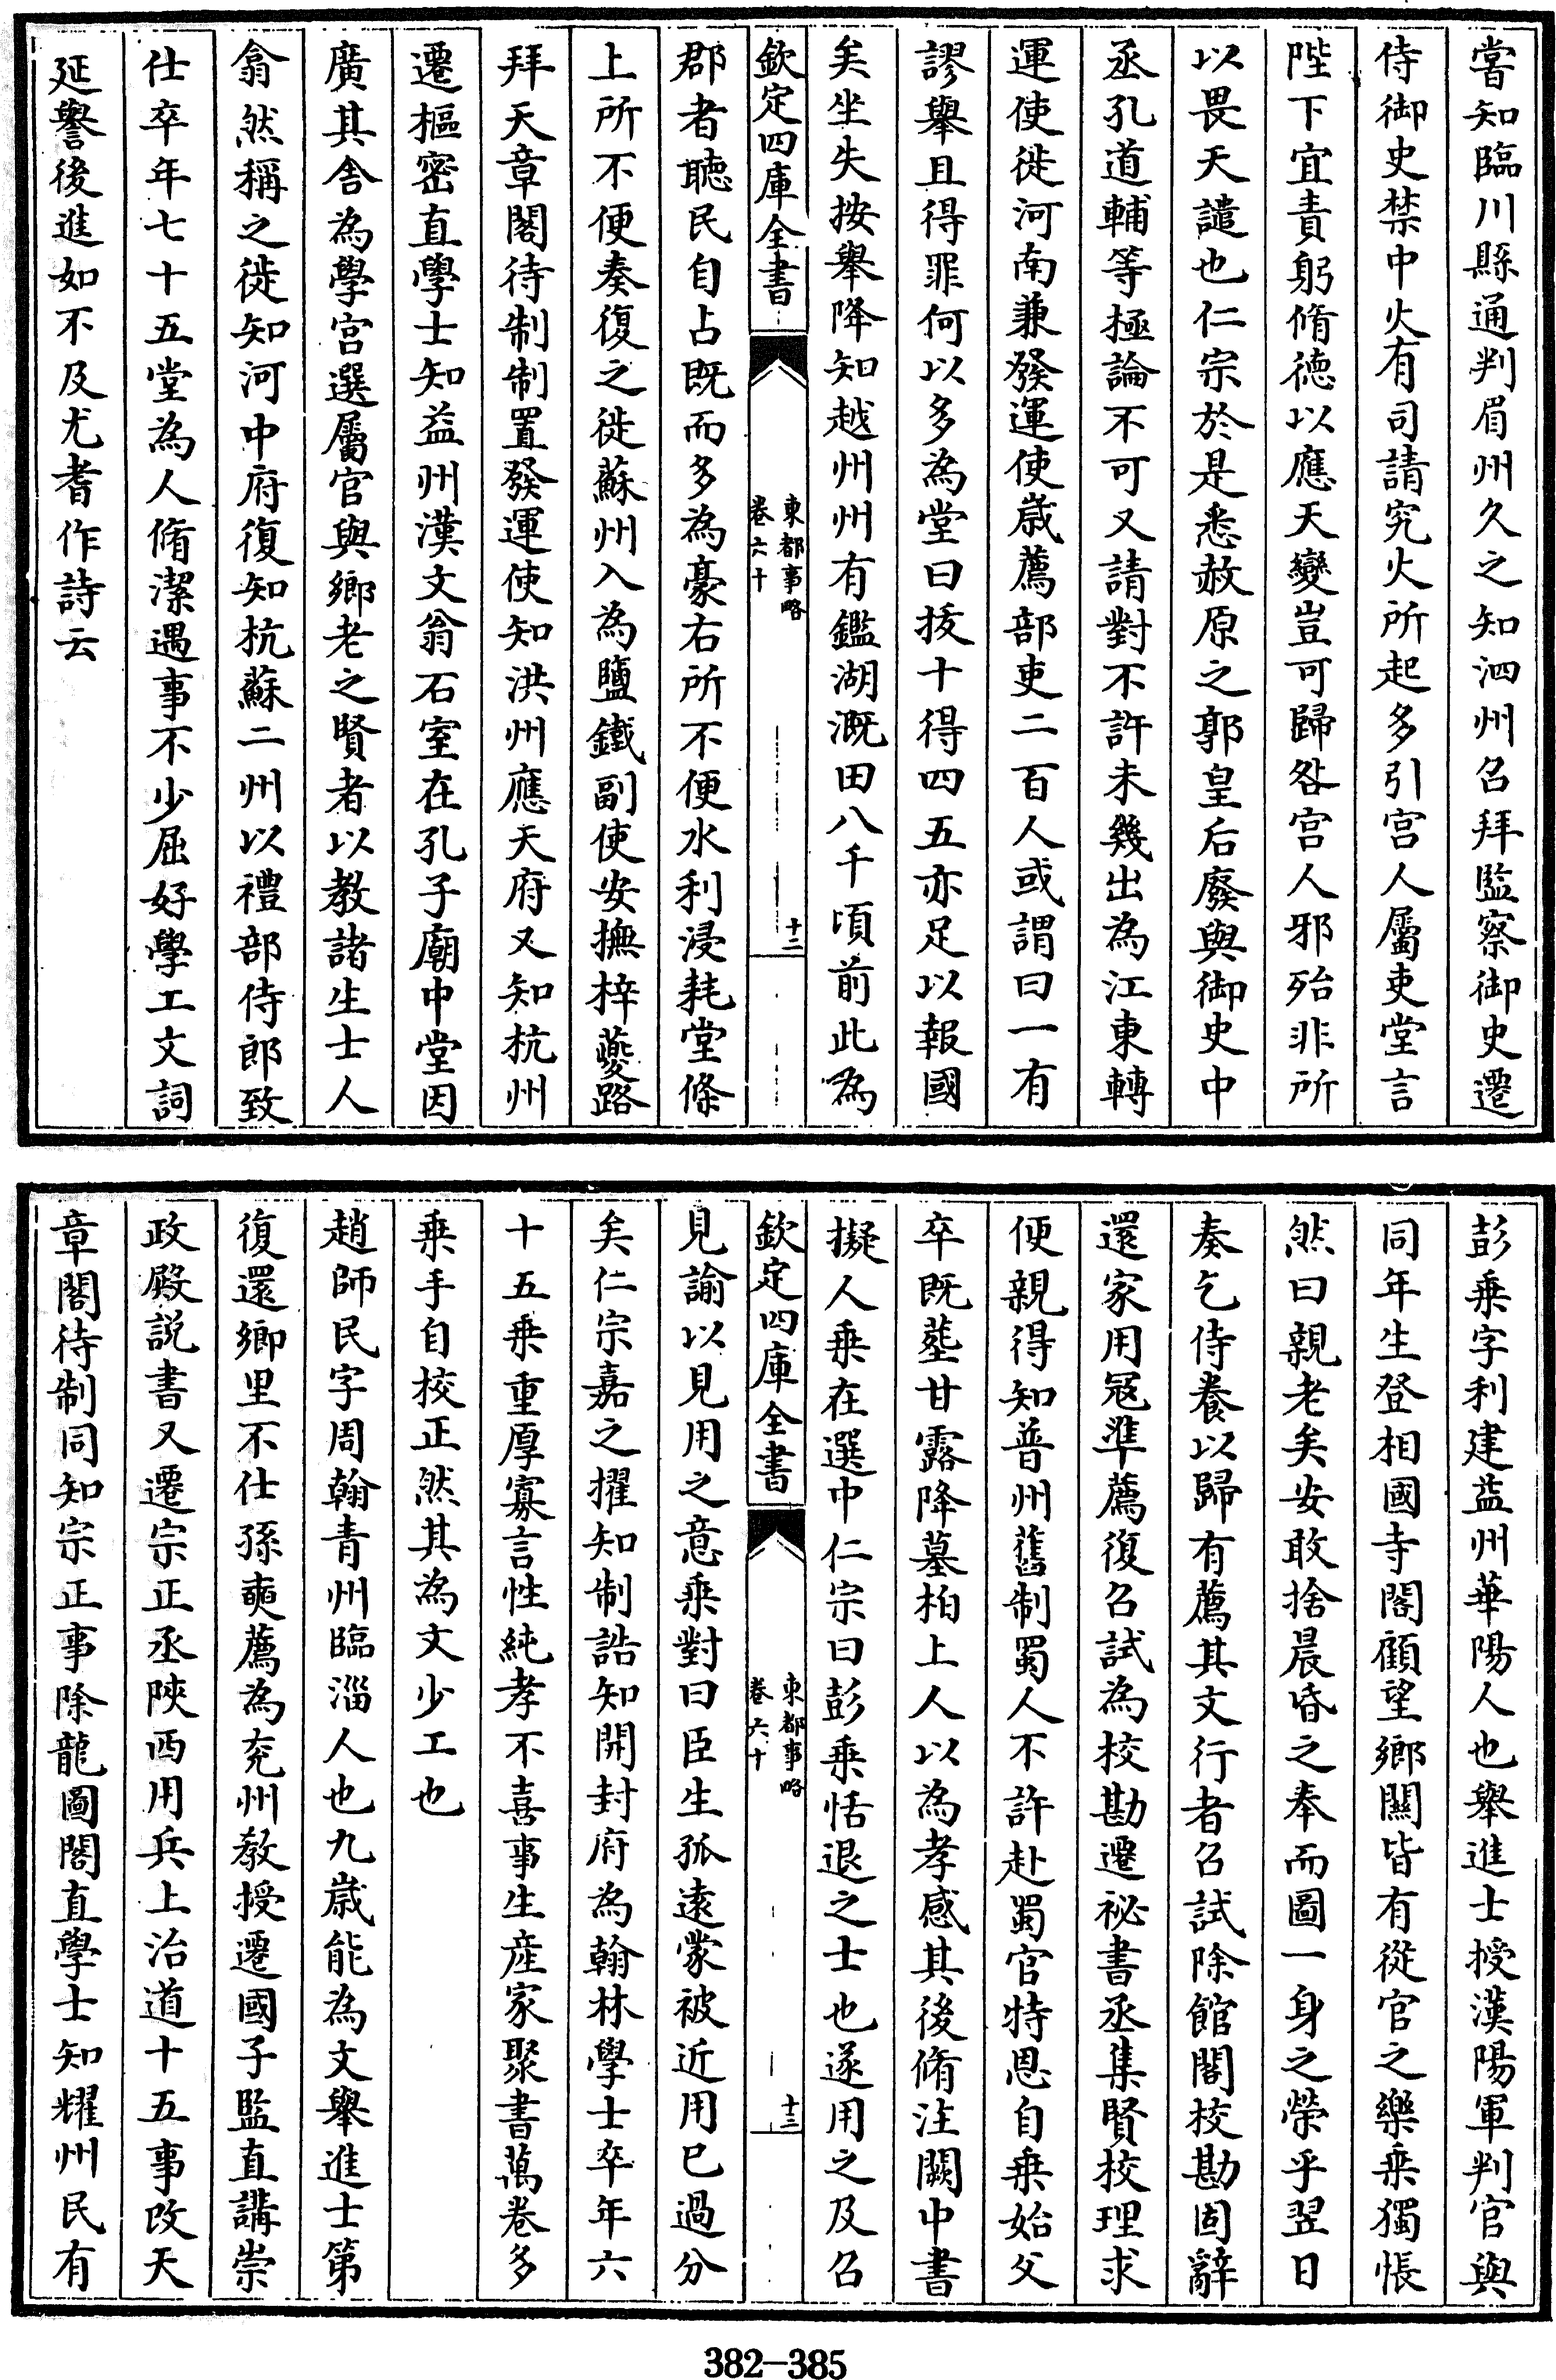 嘗知臨川縣通判眉州久之知泗州召拜監察御史遷
侍御史禁中火有司請究火所起多引宫人屬吏堂言
陛下宜責躬脩徳以應天變豈可歸咎宫人邪殆非所
以畏天譴也仁宗於是悉赦原之郭皇后廢與御史中
丞孔道輔等極論不可又請對不許未幾出為江東轉
運使徙河南兼發運使歲薦部吏二百人或謂曰一有
謬舉且得罪何以多為堂曰拔十得四五亦足以報國
矣坐失按舉降知越州州有鑑湖溉田八千頃前此為
欽定四庫全書
東都事略
卷六十
十二
郡者聽民自占既而多為豪右所不便水利浸耗堂條
上所不便奏復之徙蘇州入為鹽鐵副使安撫梓夔路
拜天章閣待制制置發運使知洪州應天府又知杭州
遷樞密直學士知益州漢文翁石室在孔子廟中堂因
廣其舍為學宫選屬官與鄉老之賢者以教諸生士人
翕然稱之徙知河中府復知杭蘇二州以禮部侍郎致
仕卒年七十五堂為人脩潔遇事不少屈好學工文詞
延譽後進如不及尤耆作詩云
彭乗字利建益州華陽人也舉進士授漢陽軍判官與
同年生登相國寺閣顧望鄉闗皆有從官之樂乗獨悵
然曰親老矣安敢捨晨昏之奉而圖一身之榮乎翌日
奏乞侍養以歸有薦其文行者召試除館閣校勘固辭
還家用冦準薦復召試為校勘遷祕書丞集賢校理求
便親得知普州舊制蜀人不許赴蜀官特恩自乗始父
卒既塟甘露降墓柏上人以為孝感其後脩注闕中書
擬人乗在選中仁宗曰彭乗恬退之士也遂用之及召
欽定四庫全書
東都事略
卷六十
十三
見諭以見用之意乗對曰臣生孤逺蒙被近用已過分
矣仁宗嘉之擢知制誥知開封府為翰林學士卒年六
十五乗重厚寡言性純孝不喜事生産家聚書萬巻多
乗手自校正然其為文少工也
趙師民字周翰青州臨淄人也九歲能為文舉進士第
復還鄉里不仕孫奭薦為兖州教授遷國子監直講崇
政殿説書又遷宗正丞陜西用兵上治道十五事改天
章閣待制同知宗正事除龍圖閣直學士知耀州民有
382-385